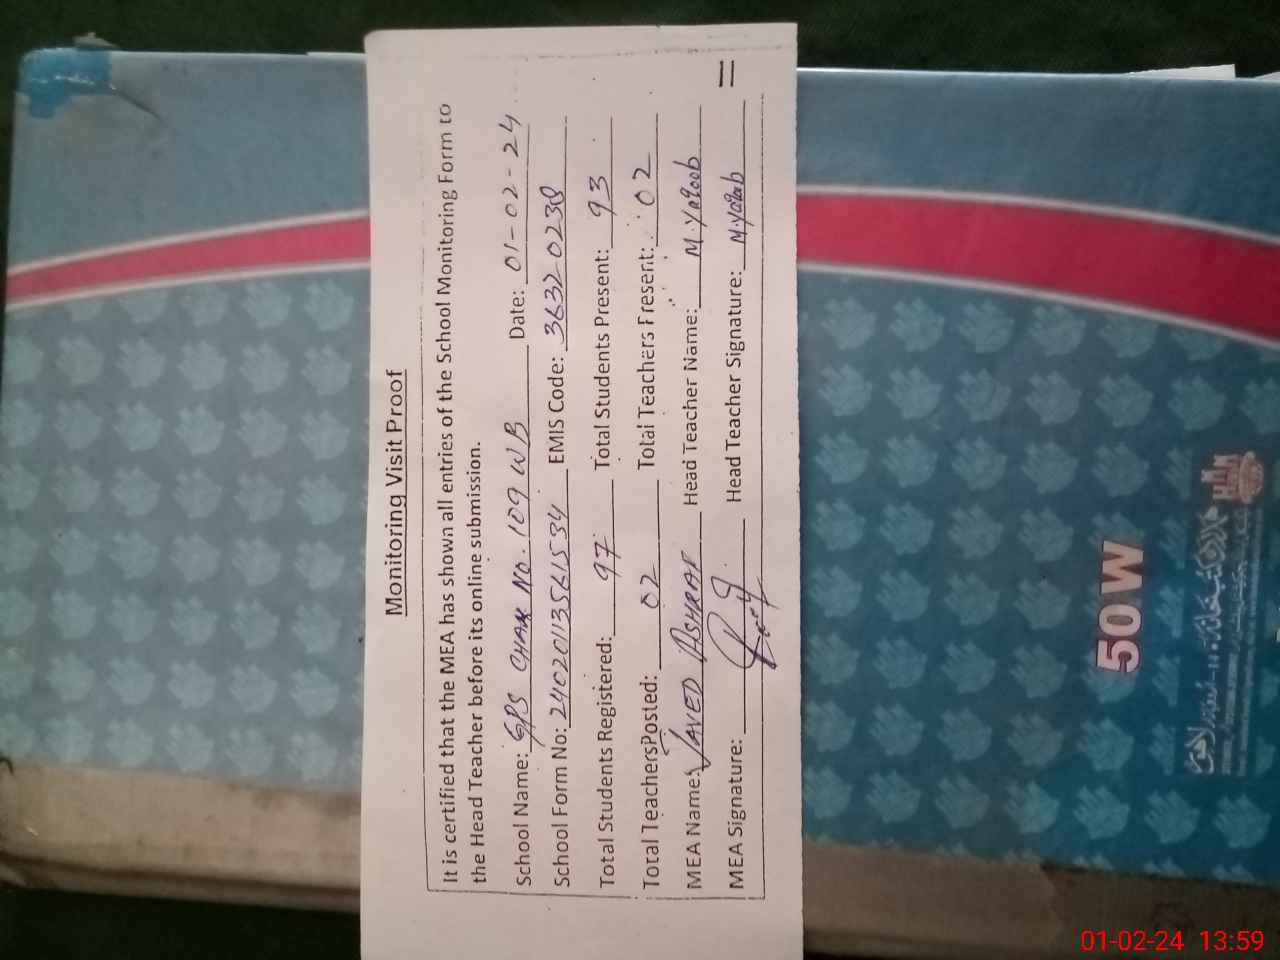 Monitoring Visit Proof
It is certified that the MEA has shown all entries of the School Monitoring Form to
the Head Teacher before its online submission.
School Name: GPS CHAK No. 109 WB Date: 01-02-24
School Form No: 24020113561534 EMIS Code: 36320238
Total Students Registered: 97 Total Students Present: 93
Total TeachersPosted: 02 Total Teachers Present: 02
MEA Name: JAVED ASHRAF Head Teacher Name: M.Yaqoob
MEA Signature: Head Teacher Signature: M.Yaqoob
50W
01-02-24 13:59